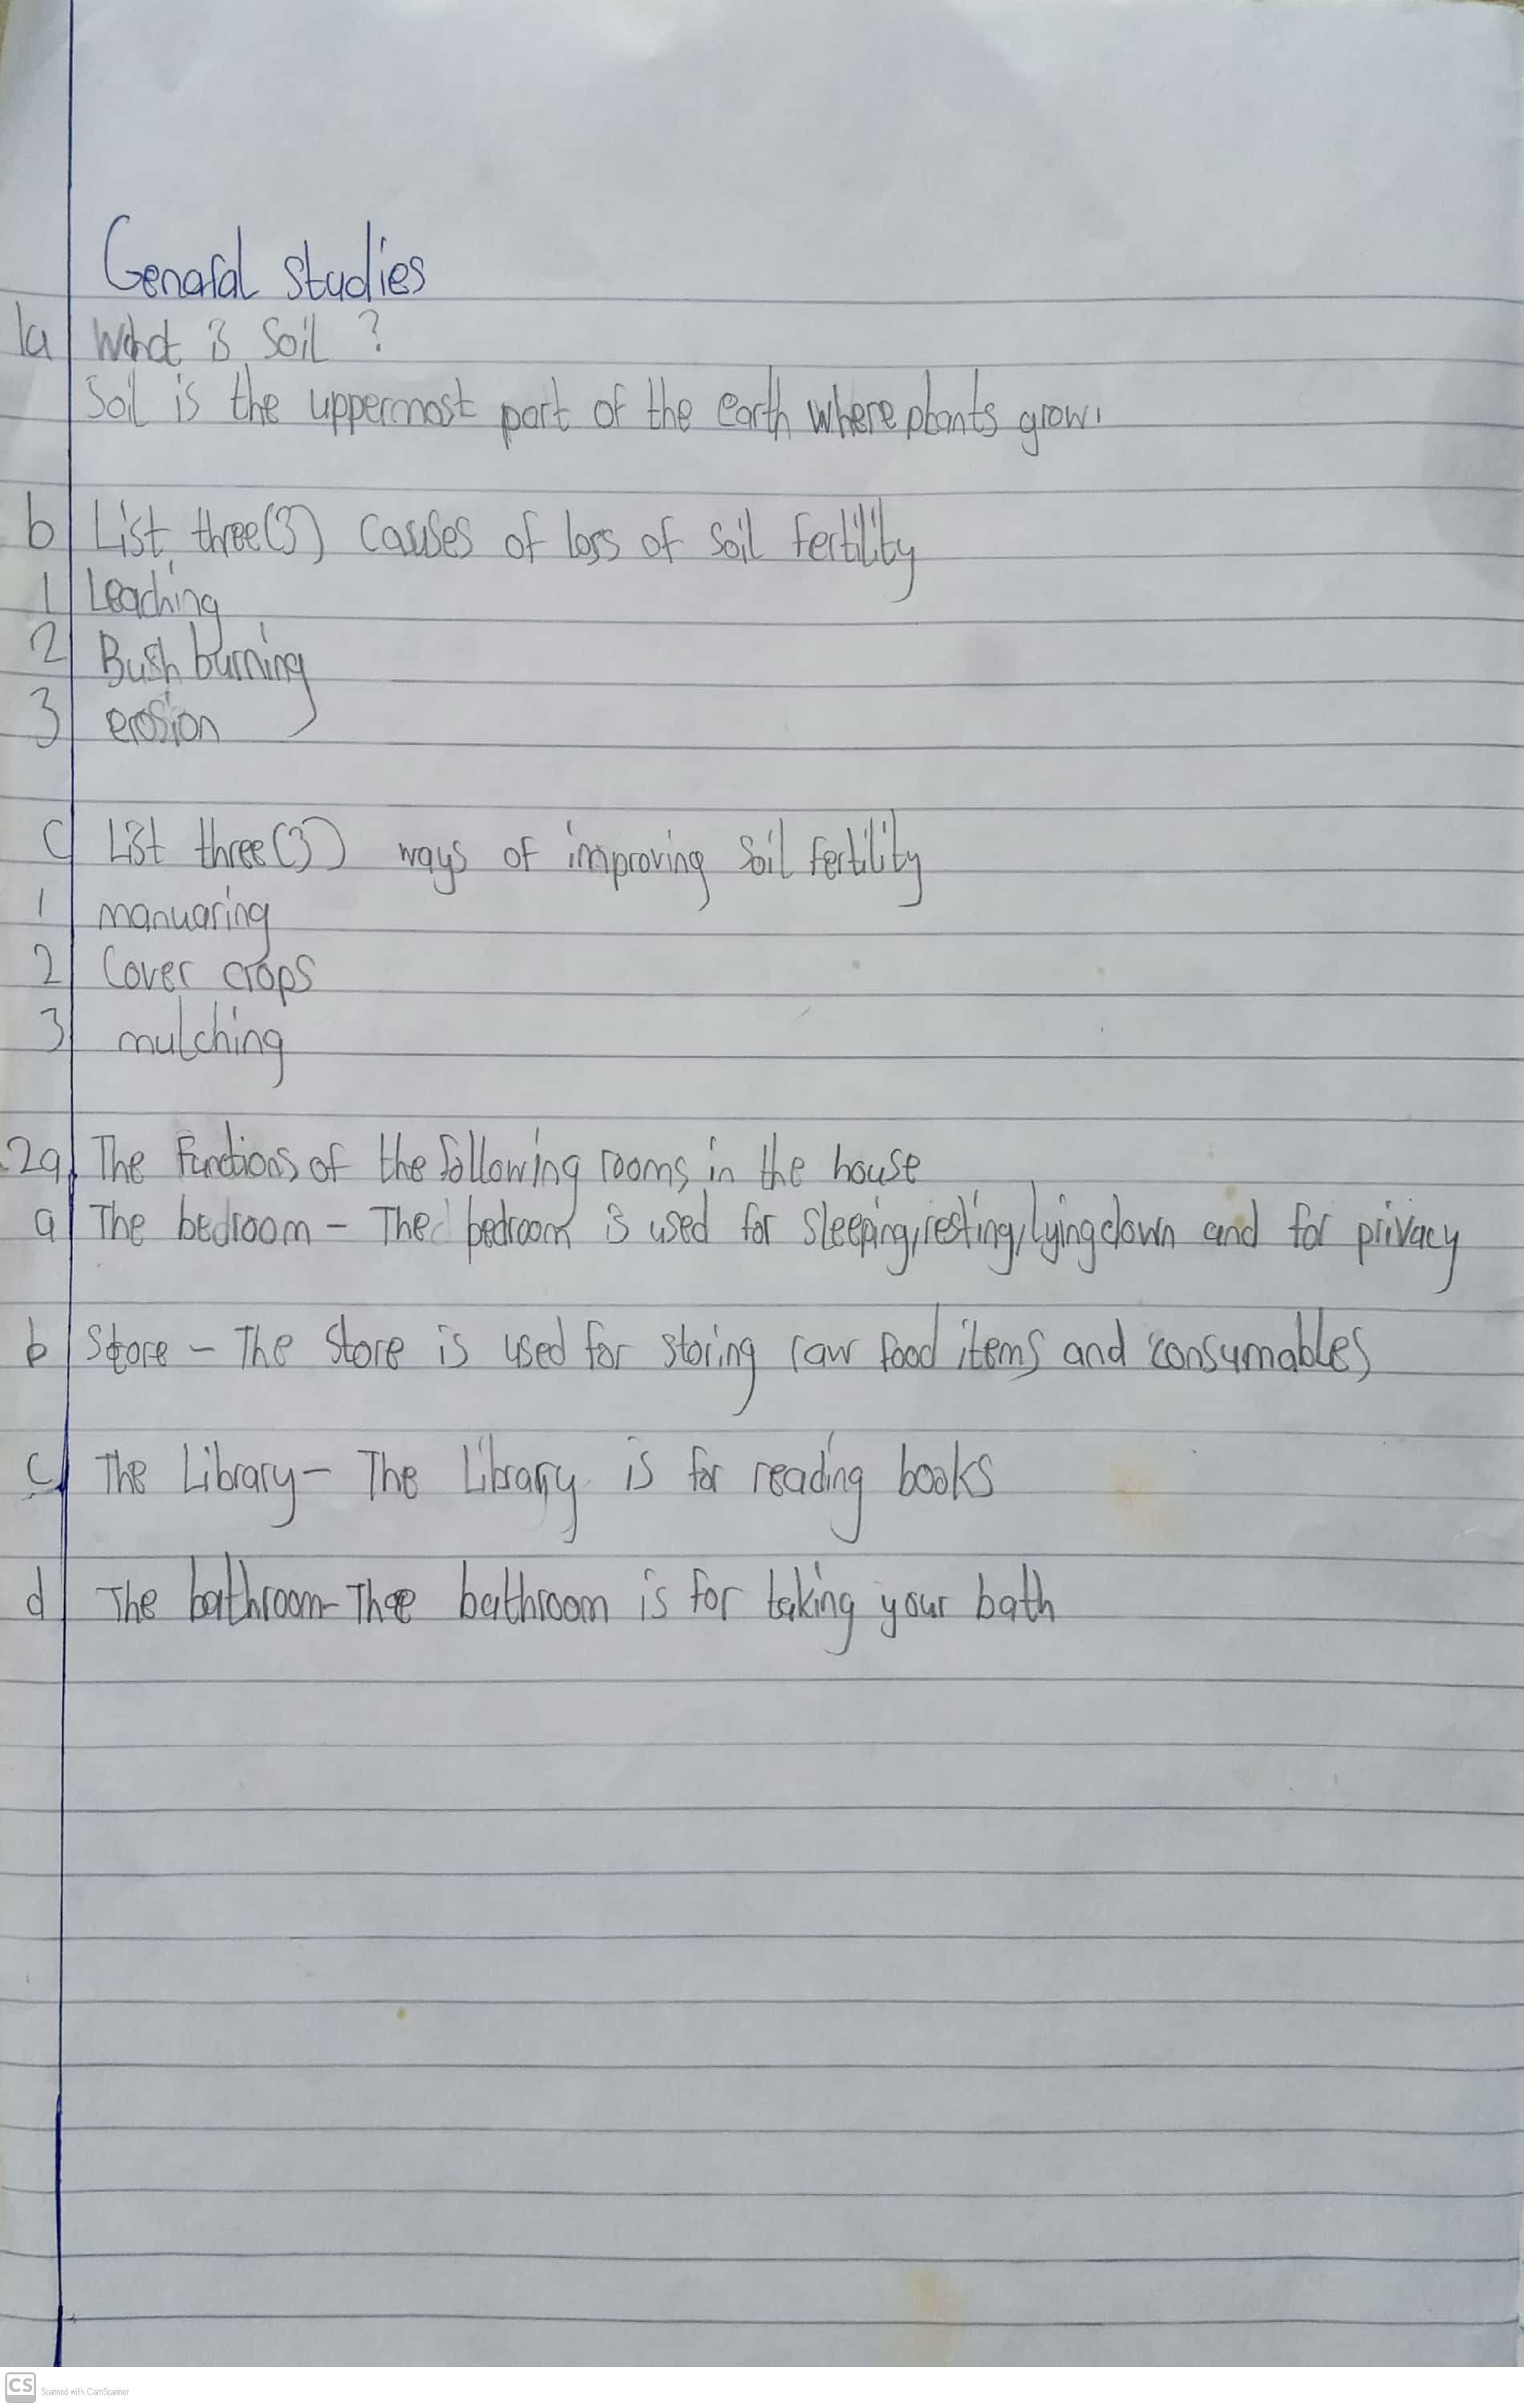 Genaral studies
1a What is Soil ?
Soil is the uppermost part of the earth where plants grow.
b List three(3) Causes of loss of Soil fertility
1 Leaching
2 Bush burning
3 erosion
c List three(3) ways of improving Soil fertility
1 manuaring
2 Cover crops
3 mulching
2a, The Functions of the following rooms in the house
a The bedroom - The bedroom is used for sleeping, resting, lying down and for privacy
b Store - The Store is used for storing raw food items and consumables
c The Library - The Library is for reading books
d The bathroom - The bathroom is for taking your bath
CS Scanned with CamScanner